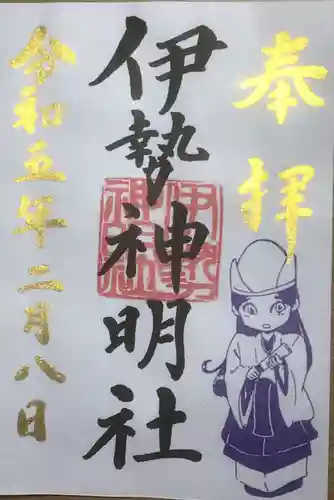 奉拝
伊勢神明社
伊勢神社
令和五年二月八日